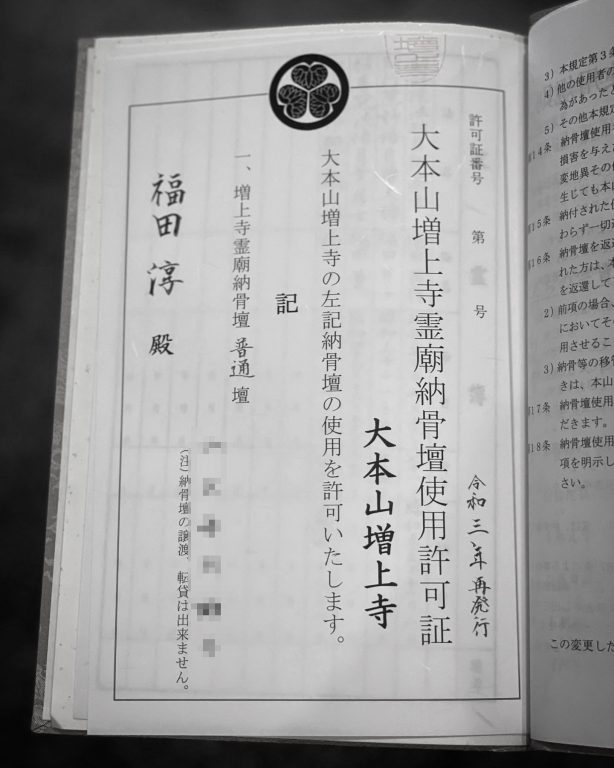 許可証番号 第 号
令和三年再発行
大本山増上寺霊廟納骨壇使用許可証
大本山増上寺
大本山増上寺の左記納骨壇の使用を許可いたします。
記
一、増上寺霊廟納骨壇 普通 壇
(注)納骨壇の譲渡、転貸は出来ません。
福田 淳 殿
3) 本規定第3条
4) 他の使用者の
為があったと
5) その他本規定
第14条 納骨壇使用
損害を与え
変地異その
生じても本
第15条 納付された
わらず一切
第16条 納骨壇を返
れた方は、本
を返還して
2) 前項の場合、
においてそ
用させるこ
3) 納骨等の移
きは、本山
第17条 納骨壇使用
だきます。
第18条 納骨壇使用
項を明示し
さい。
この変更した